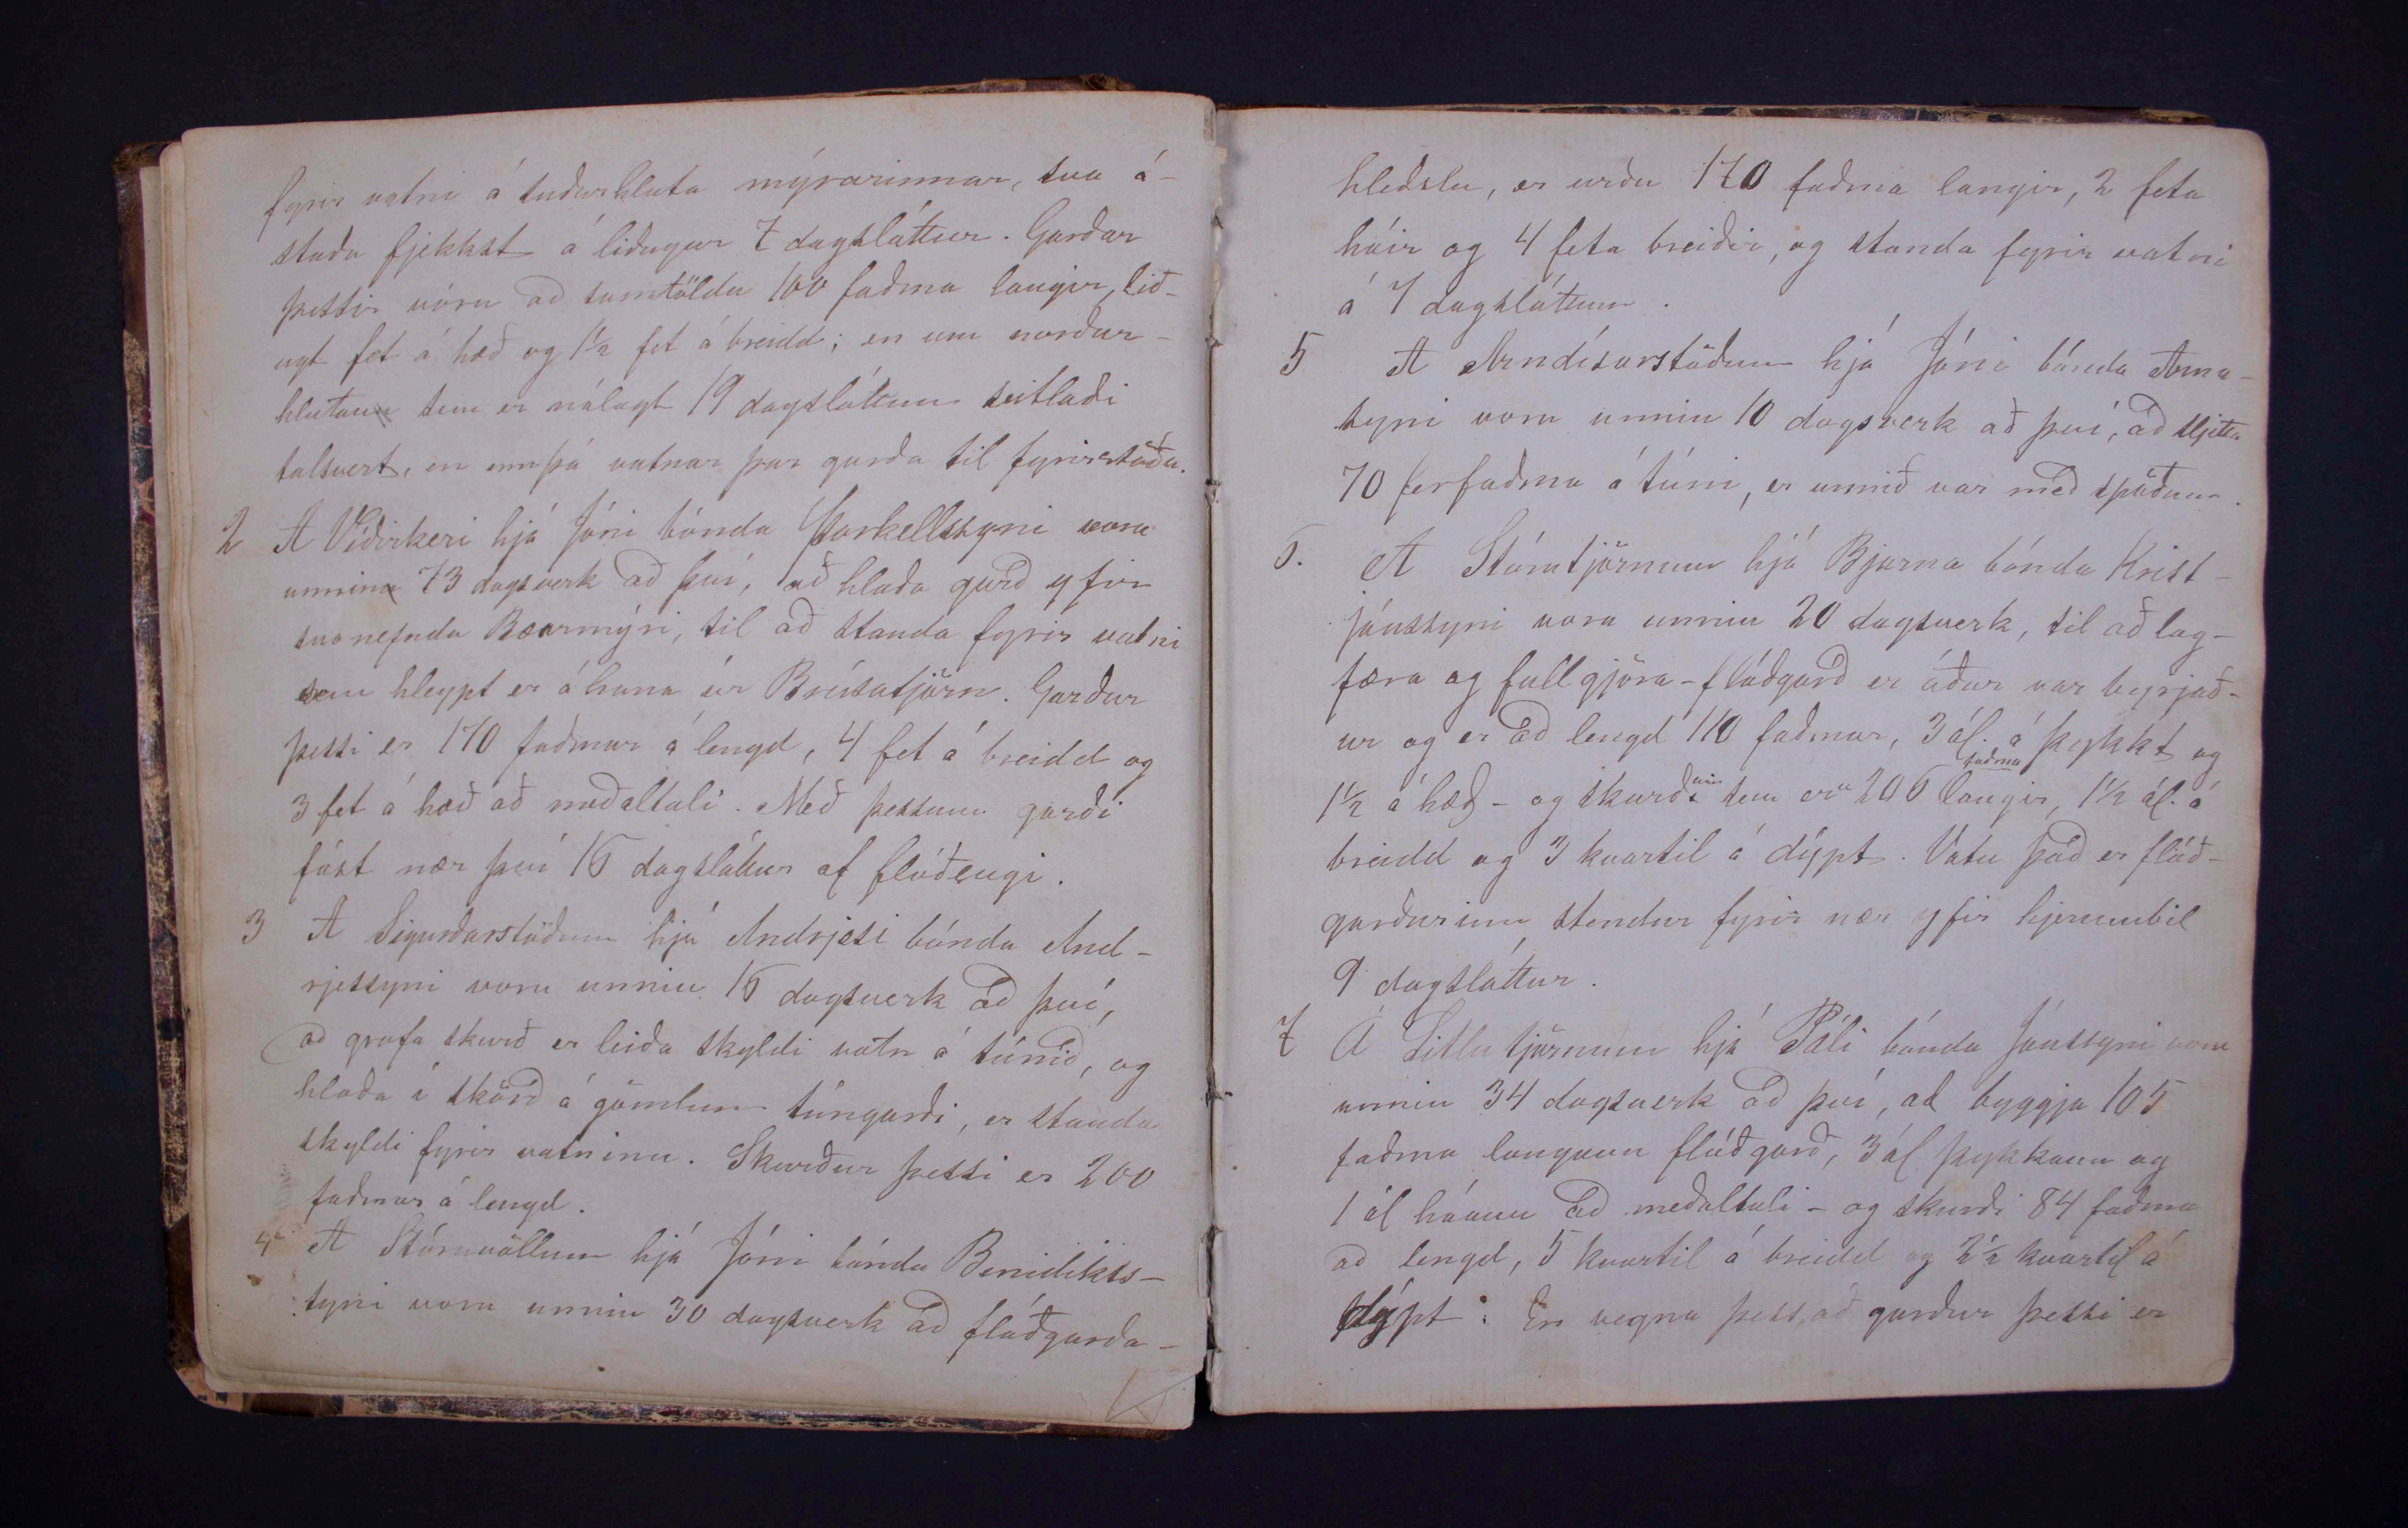 fyrir vatni á suðurhluta mýrarinnar, svo á-
staða fjekkst á liðugur 7 dagsláttur. Garðar
þessir vóru að samtöldu 100 faðma langir, lið-
ugt fet á hæð og 1½ fet á breidd; en um norður-
hlutann sem er nálægt 19 dagsláttum seitlaði
talsvert, en ennþá vatnar þar garða til fyrirstöðu.
2 A Víðirkeri hjá Jóni bónda Þorkellssyni voru
unnin 73 dagsverk að því, að hlaða garð yfir
svonefnda Bæarmýri, til að standa fyrir vatni
sem hleypt er á hana úr Brúsatjörn. Garður
þessi er 170 faðmar á lengd, 4 fet á breidd og
3 fet á hæð að meðaltali. Með þessum garði
fást nær því 16 dagsláttur af flóðengi.
3 A Sigurðarstöðum hjá Andrjesi bónda And-
rjessyni voru unnin 16 dagsverk að því,
að grafa skurð er leiða skyldi vatn á túnið, og
hlaða í skörð á gömlum túngarði, er standa
skyldi fyrir vatninu. Skurður þessi er 200
faðmar á lengd.
4 A Stóruvöllum hjá Jóni bónda Benidikts-
syni voru unnin 30 dagsverk að flóðgarða-
hleðslu, er urðu 170 faðma langir, 2 feta
háir og 4 feta breiðir, og standa fyrir vatni
á 7 dagsláttum.
5 A Arndísarstöðum hjá Jóni bónda Árna-
syni voru unnin 10 dagsverk að því, að sljetta
70 ferfaðma á túni, er unnið var með spöðum.
6. A Stórutjörnum hjá Bjarna bónda Krist-
jánssyni voru unnin 20 dagsverk, til að lag-
færa og fullgjöra - flóðgarð er áður var byrjað-
ur og er að lengd 110 faðmar, 3 ál. á þykkt og
1½ á hæð - og skurðinn sem eru 206 faðma langir, 1½ ál. á
breidd og 3 kvartil á dýpt. Vatn það er flóð-
garðurinn stendur fyrir nær yfir hjerumbil
9 dagsláttur.
7 Á Litlutjörnum hjá Páli bónda Jónssyni voru
unnin 34 dagsverk að því, að byggja 105
faðma langann flóðgarð, 3 ál þykkann og
1 ál háann að meðaltali - og skurði 84 faðma
að lengd, 5 kvartil á breidd og 2½ kvartil á
dýpt: En vegna þess, að garður þessi er